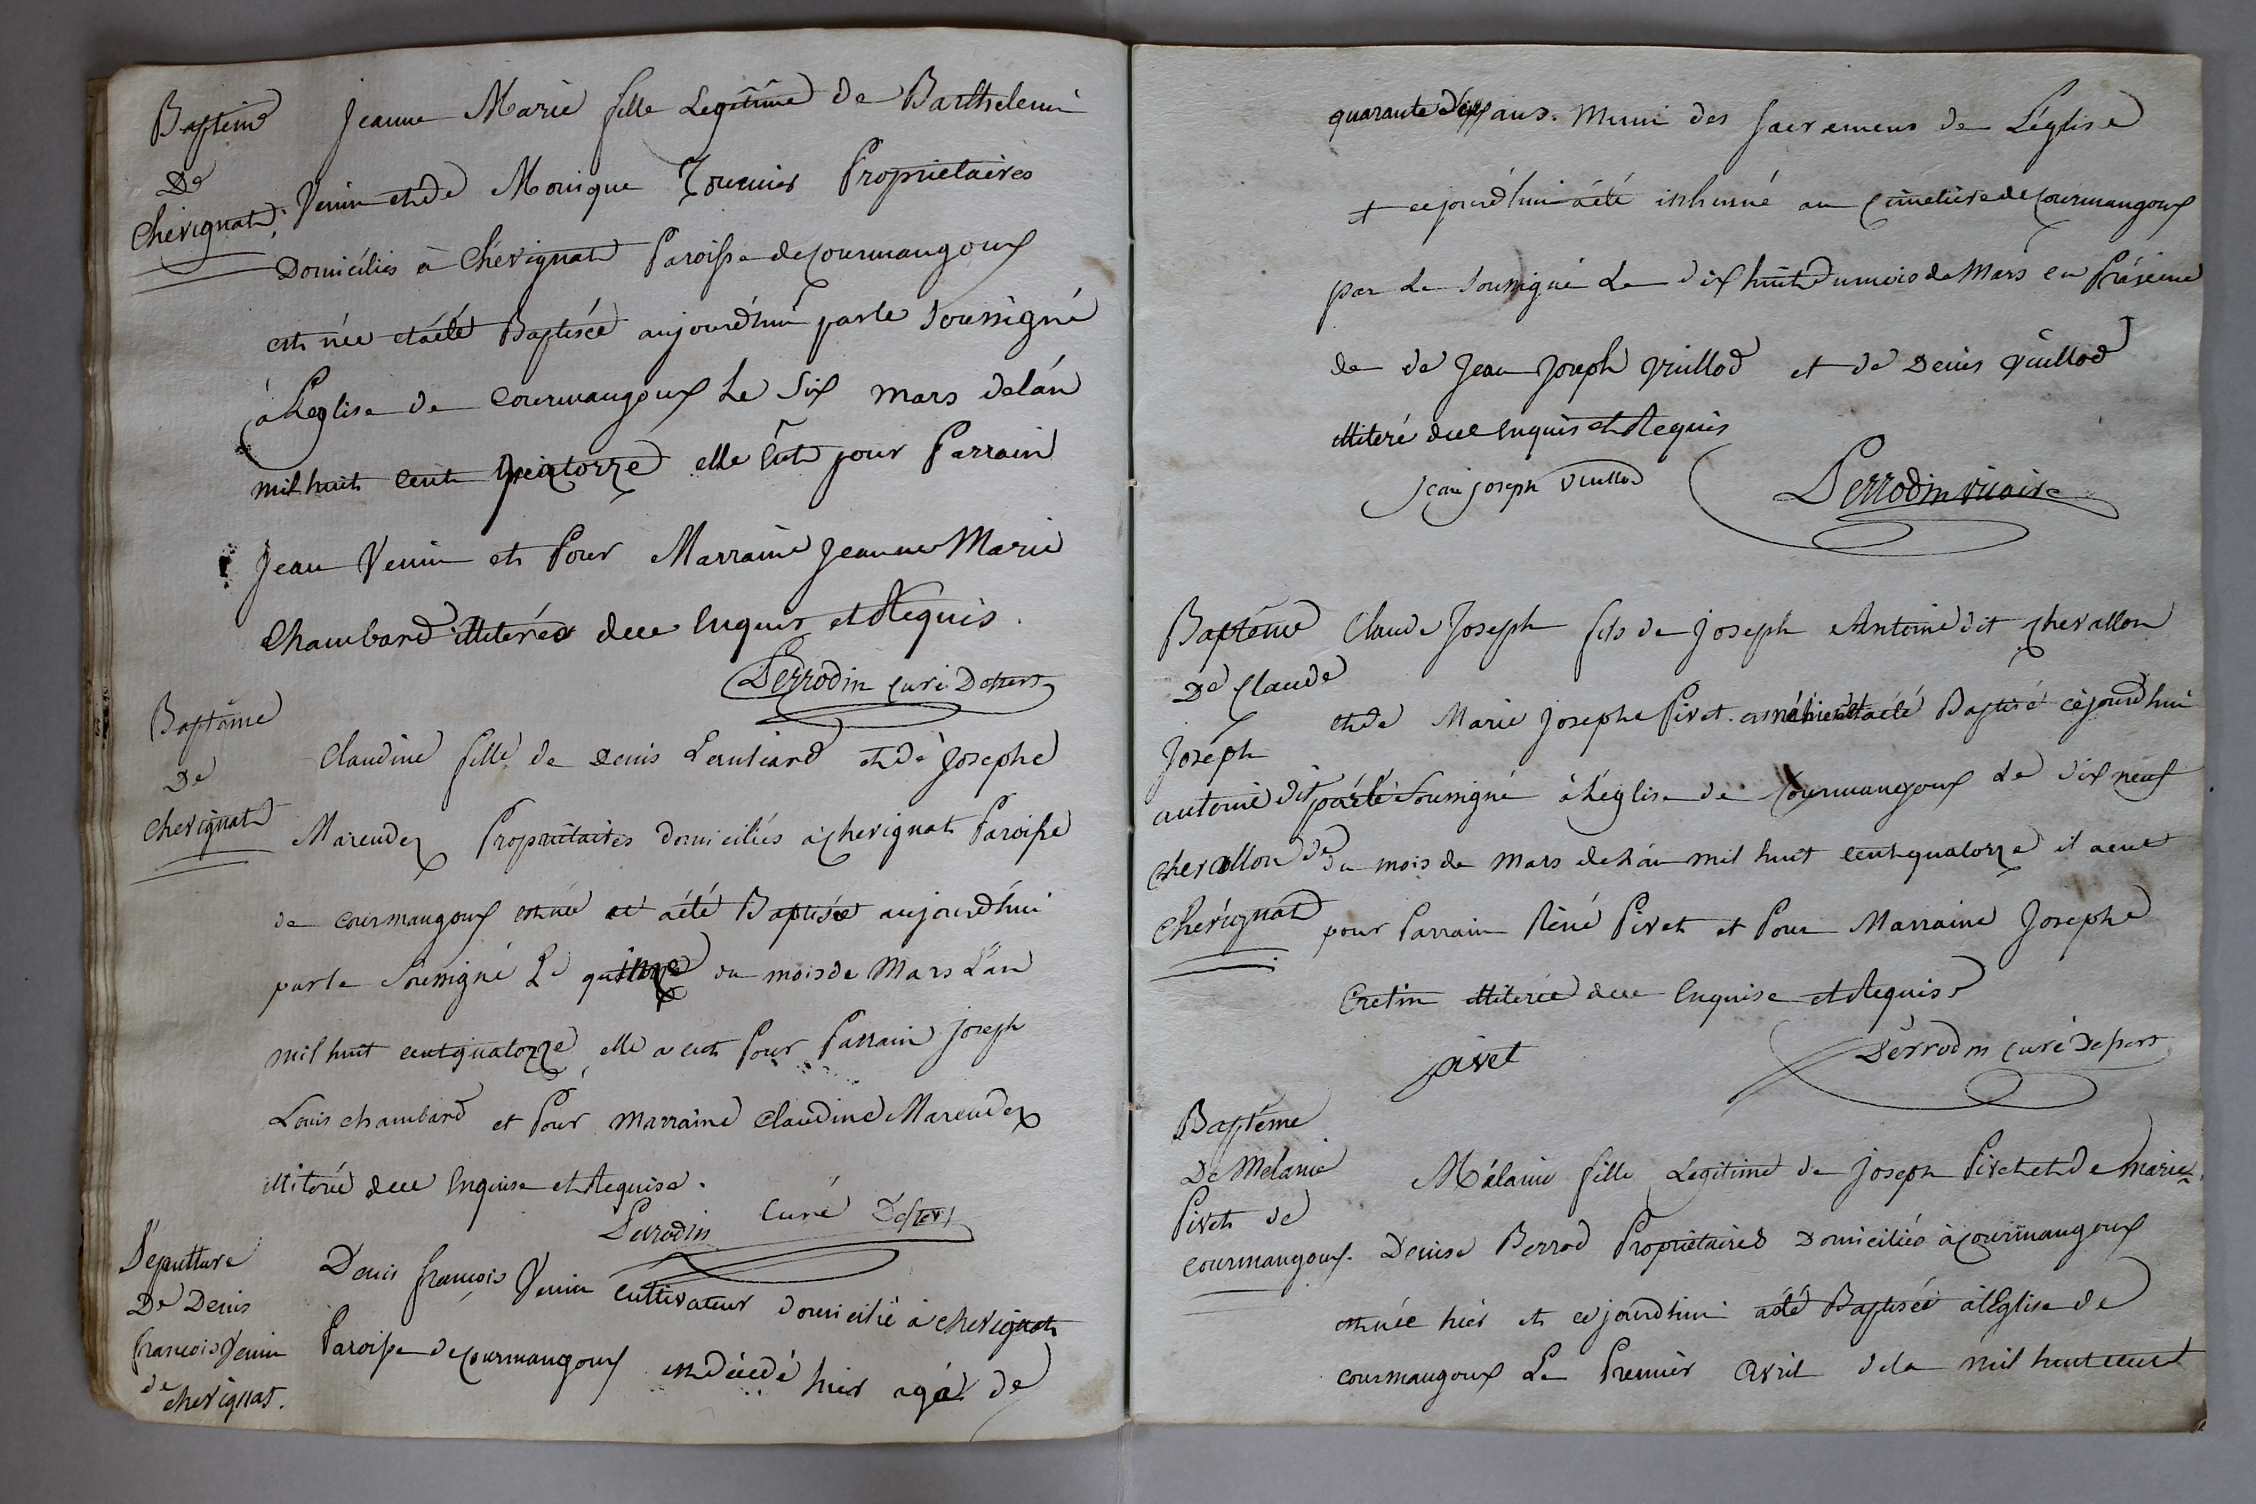 Baptême
De
Chevignat.
Jeanne Marie fille Legitime de Barthelemi
Venin et de Monique Tournier Proprietaires
Domiciliés à Chevignat Paroisse de Courmangoux
est née et a été Baptisée aujourd'hui par le soussigné
à L'eglise de Courmangoux Le Six mars de l'an
mil huit cent quatorze elle eut pour Parrain
Jean Venin et Pour Marraine Jeanne Marie
Chambard illiterés de ce Enquis et Requis.
Perrodin curé Desserv
Baptême
De
Chevignat
Claudine fille de Denis Pauliard et de Josephe
Marendez Proprietaires domiciliés à chevignat Paroisse
de courmangoux est née et a été Baptisée aujourd'hui
par le soussigné Le du mois de Mars L'an
mil huit cent quatorze, elle a eut Pour Parrain joseph
Louis chambard et Pour marraine Claudine Marendez
illiterée de ce Enquise et Requise.
Perrodin Curé Desserv
Sepulture
De Denis
francois Venin
de
chevignat.
Denis françois Venin Cultivateur domicilié à chevignat
Paroisse de Courmangoux est décédé hier agé de
quarante ans. Muni des Sacremens de L'église
et cejourd'hui a été inhumé au Cimetiere de Courmangoux
par Le soussigné Le dix huit du mois de Mars en Présence
de de Jean Joseph Vuillod et de Denis Vuillod
illiteré de ce Enquis et Requis
jean joseph Vuillod
Perrodin vicaire
Baptême
De Claude
Joseph
antoine dit
chevallon de
Chevignat
Claude Joseph fils de Joseph Antoine dit Chevallon
et de Marie Josephe Pivet. est né hier et a été Baptisé cejourd'hui
par le soussigné à L'église de Courmangoux Le dix neuf
du mois de mars de L'an mil huit cent quatorze il a eut
pour Parrain Réné Pivet et Pour Marraine Josephe
Cretin illiterée de ce Enquise et Requise
pivet
Perrodin curé Desserv
Baptême
De Melanie
Pivet de
courmangoux.
Mélanie fille Legitime de joseph Pivet et de Marie
Denise Berrod Proprietaires Domiciliés à courmangoux
est née hier et cejourd'hui a été Baptisée à l'Eglise de
courmangoux Le Premier avril de la mil huit cent